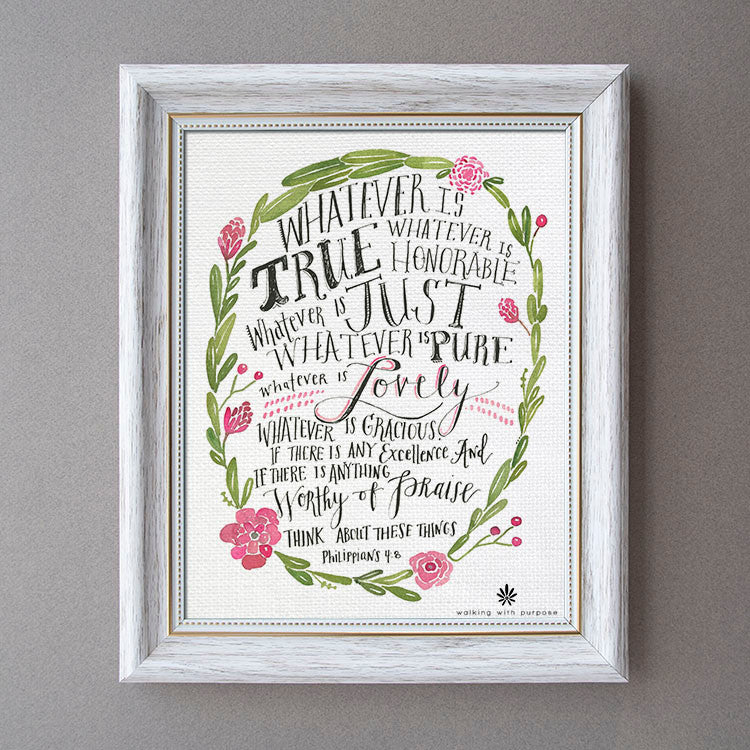 WHATEVER IS
TRUE WHATEVER IS
HONORABLE
Whatever is JUST
WHATEVER IS PURE
whatever is Lovely
WHATEVER IS GRACIOUS
IF THERE IS ANY Excellence And
IF THERE IS ANYTHING
Worthy of Praise
THINK ABOUT THESE THINGS
Philippians 4:8
walking with purpose